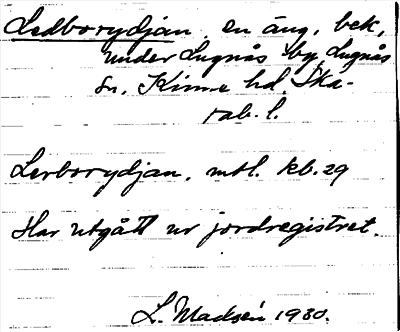 Ledborydjan, en äng, bek,
under Lugnås by, Lugnås
sn. Kinne hd. Ska-
rab. l.
Lerborydjan. mtl. kb. 29
Har utgått ur jordregistret.
L. Madsén 1930.